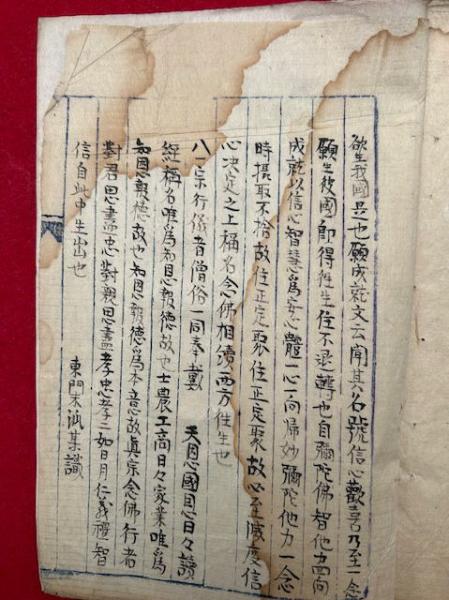 欲生我國是也願成就文云聞其名號信心歡喜乃至一念
願生彼國即得往生住不退轉也自彌陀佛智他力回向
成就以信心智慧爲安心體一心一向歸妙彌陀他力一念
時攝取不捨故住正定聚住正定聚故必至滅度信
心決定之上稱名念佛相續西方往生也
八一宗行儀者僧俗一同奉戴 天恩國恩日々讀
經稱名唯爲知恩報德故也士農工商日々家業唯爲
知恩報德故也知恩報德爲本意故眞宗念佛行者
對君思盡忠對親思盡孝忠孝二如日月仁義禮智
信自此中生出也
東門末流某識